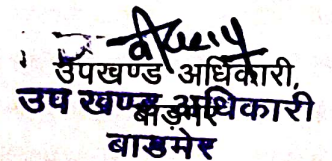 उपखण्ड अधिकारी,
उप खण्ड अधिकारी
बाड़मेर
बाडमेर